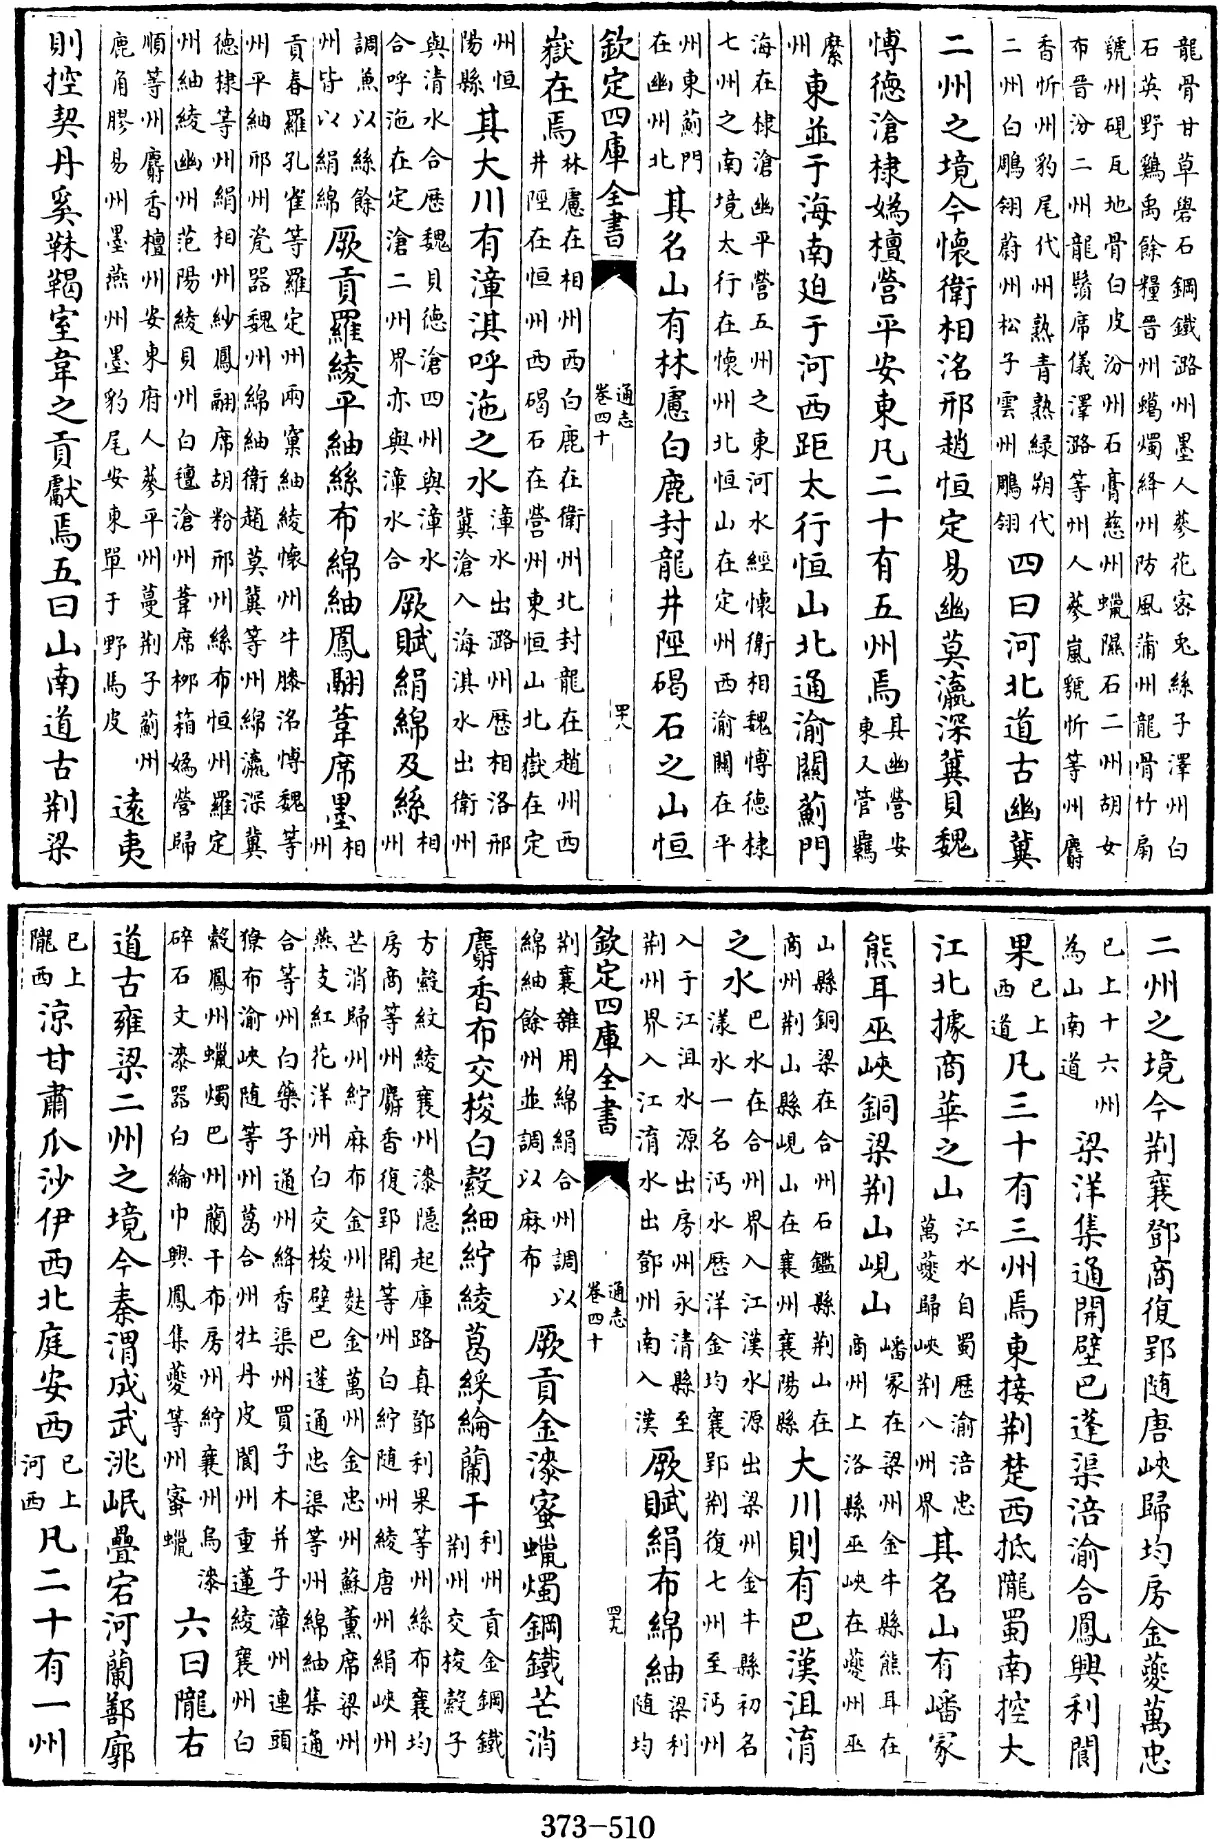 龍骨甘草礜石鋼鐵潞州墨人蔘花宻兎絲子澤州白
石英野鷄禹餘糧晉州蠟燭絳州防風蒲州龍骨竹扇
虢州硯瓦地骨白皮汾州石膏慈州蠟隰石二州胡女
布晉汾二州龍鬚席儀澤潞等州人蔘嵐虢忻等州麝
香忻州豹尾代州熟青熟緑朔代
二州白鵰翎蔚州松子雲州鵰翎
四曰河北道古幽冀
二州之境今懷衛相洺邢趙恒定易幽莫瀛深冀貝魏
博德滄棣媯檀營平安東凡二十有五州焉
其幽營安
東又管羈
縻
州
東並于海南迫于河西距太行恒山北通渝關薊門
海在棣滄幽平營五州之東河水經懷衛相魏博德棣
七州之南境太行在懷州北恒山在定州西渝關在平
州東薊門
在幽州北
其名山有林慮白鹿封龍井陘碣石之山恒
欽定四庫全書
通志
卷四十
四十八
嶽在焉
林慮在相州西白鹿在衛州北封龍在趙州西
井陘在恒州西碣石在營州東恒山北嶽在定
州恒
陽縣
其大川有漳淇呼沲之水
漳水出潞州歷相洛邢
冀滄入海淇水出衛州
與清水合歷魏貝德滄四州與漳水
合呼沲在定滄二州界亦與漳水合
厥賦絹綿及絲
相
州
調兼以絲餘
州皆以絹綿
厥貢羅綾平紬絲布綿紬鳳翮葦席墨
相
州
貢春羅孔雀等羅定州兩窠紬綾懷州牛膝洺博魏等
州平紬邢州瓷器魏州綿紬衛趙莫冀等州綿瀛深冀
德棣等州絹相州紗鳳翮席胡粉邢州絲布恒州羅定
州紬綾幽州范陽綾貝州白氊滄州葦席栁箱媯營歸
順等州麝香檀州安東府人蔘平州蔓荆子薊州
鹿角膠易州墨燕州墨豹尾安東單于野馬皮
遠夷
則控契丹奚靺鞨室韋之貢獻焉五曰山南道古荆梁
二州之境今荆襄鄧商復郢随唐峽歸均房金夔萬忠
已上十六州
為山南道
梁洋集通開壁巴蓬渠涪渝合鳳興利閬
果
已上
西道
凡三十有三州焉東接荆楚西抵隴蜀南控大
江北據商華之山
江水自蜀歴渝涪忠
萬夔歸峽荆八州界
其名山有嶓冢
熊耳巫峽銅梁荆山峴山
嶓冢在梁州金牛縣熊耳在
商州上洛縣巫峽在夔州巫
山縣銅梁在合州石鑑縣荆山在
商州荆山縣峴山在襄州襄陽縣
大川則有巴漢沮淯
之水
巴水在合州界入江漢水源出梁州金牛縣初名
漾水一名沔水歴洋金均襄郢荆復七州至沔州
入于江沮水源出房州永清縣至
荆州界入江淯水出鄧州南入漢
厥賦絹布綿紬
梁利
随均
荆襄雜用綿絹合州調以
綿紬餘州並調以麻布
欽定四庫全書
通志
卷四十
四十九
厥貢金漆蜜蠟燭鋼鐵芒消
麝香布交梭白縠細紵綾葛綵綸蘭干
利州貢金鋼鐵
荆州交梭縠子
方縠紋綾襄州漆隠起庫路真鄧利果等州絲布襄均
房商等州麝香復郢開等州白紵随州綾唐州絹峽州
芒消歸州紵麻布金州麩金萬州金忠州蘇薰席梁州
燕支紅花洋州白交梭壁巴蓬通忠渠等州綿紬集通
合等州白藥子通州絳香渠州買子木并子漳州連頭
獠布渝峽随等州葛合州牡丹皮閬州重蓮綾襄州白
縠鳳州蠟燭巴州蘭干布房州紵襄州烏漆
碎石文漆器白綸巾興鳳集夔等州蜜蠟
六曰隴右
道古雍梁二州之境今秦渭成武洮岷疊宕河蘭鄯廓
已上
隴西
涼甘肅瓜沙伊西北庭安西
已上
河西
凡二十有一州
373-510